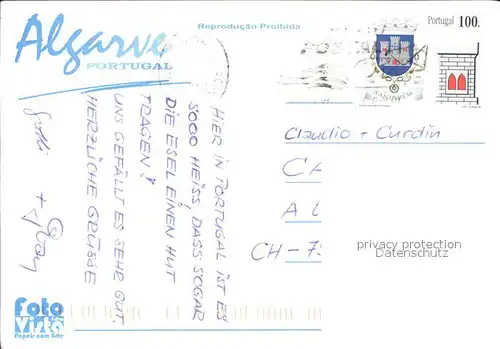 Algarve
PORTUGAL
Reprodução Proibida
Portugal 100.
HIER IN PORTUGAL IST ES
SOOO HEISS, DASS SOGAR
DIE ESEL EINEN HUT
TRAGEN!
UNS GEFÄLLT ES SEHR GUT.
HERZLICHE GRÜSSE
+
Claudio + Curdin
CA
AL
CH-7
privacy protection
Datenschutz
Foto
Vista